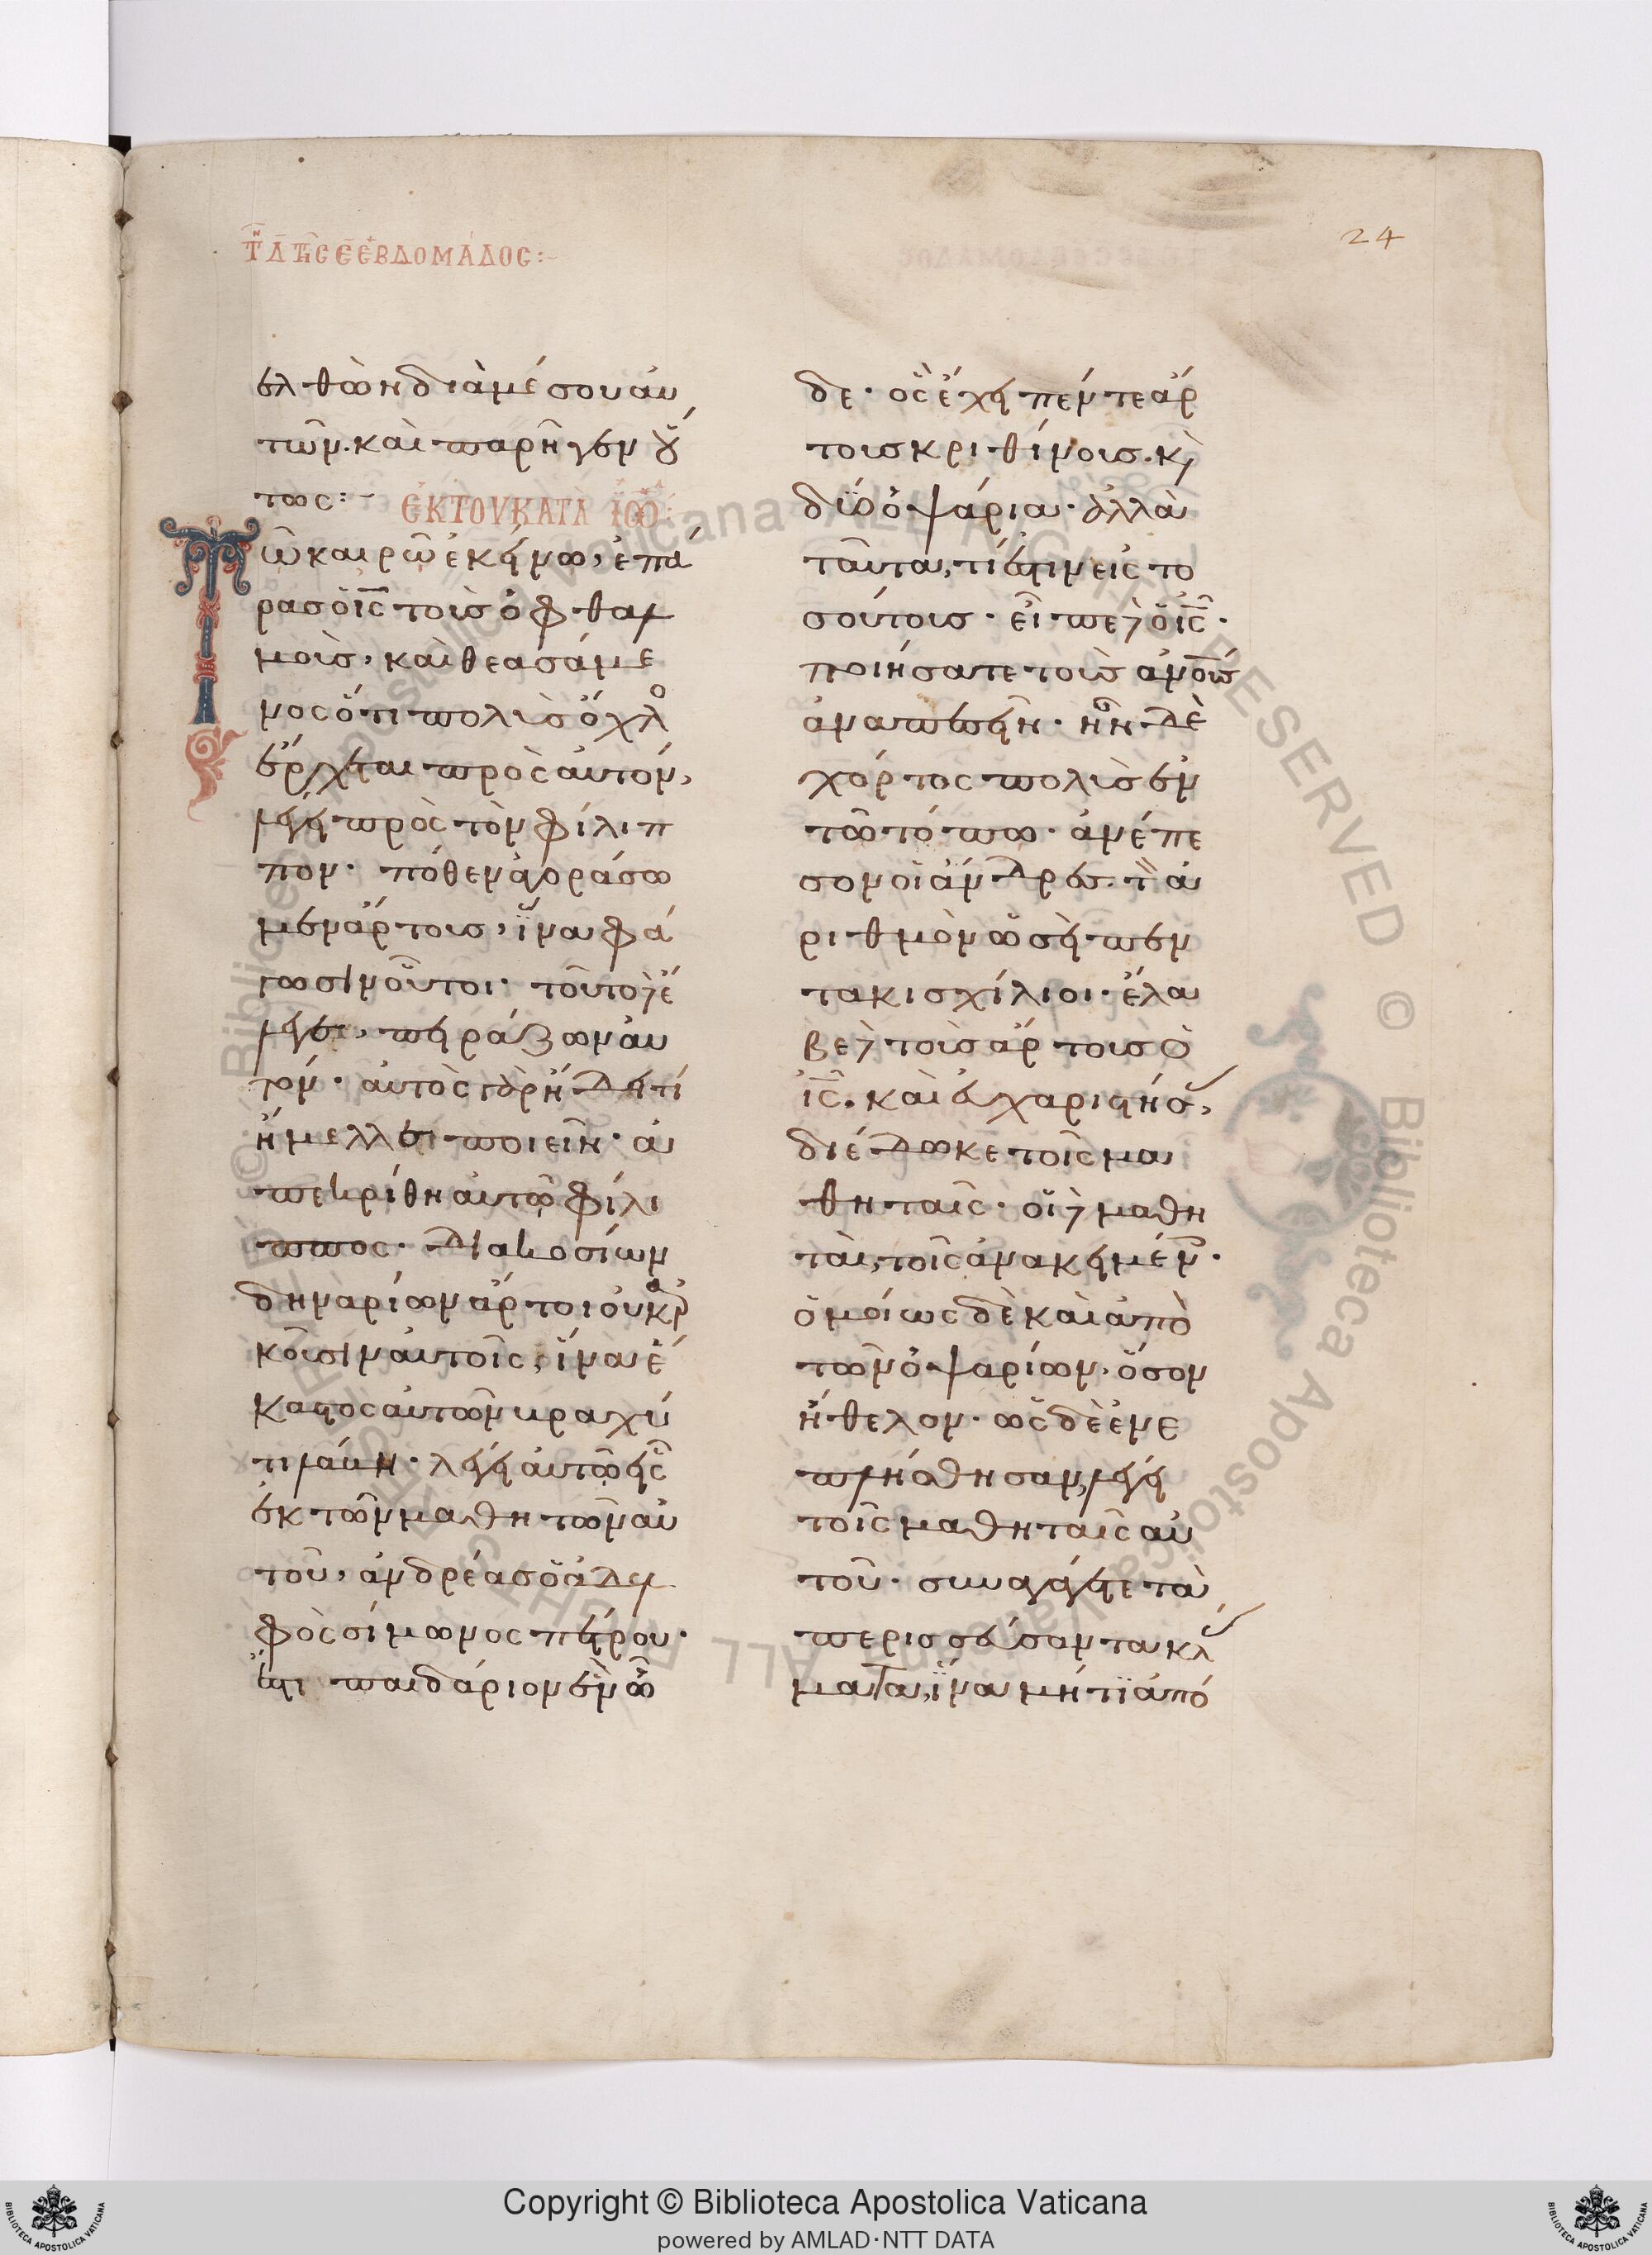 24
Τῇ Δ τῆς Ε ἑβδομάδος:–
ελθὼν διὰ μέσου ἀυ
τῶν. καὶ παρῆγεν ὅυ
τως:– ἐκ τοῦ κατὰ ἰω
Τῶ καιρῶ ἐκείνω, ἐπά
ρας ὁ ις τοὺς ὀφθαλ
μοὺς, καὶ θεασάμε
νος ὅτι πολὺς ὄχλο
ἔρχεται πρὸς ἀυτόν,
λέγει πρὸς τὸν φίλιπ
πον. πόθεν ἀγοράσω
μεν ἄρτους, ἵνα φά
γωσιν οὗτοι. τοῦτο δὲ ἔ
λεγει, πειράζων ἀυ
τόν. ἀυτὸς γὰρ ἤδει τί
ἤμελλει ποιεῖν. ἀ
πεκρίθη ἀυτῶ φίλι
ππος. διακοσίων
δηναρίων ἄρτοι ὀυκ ἀρ
κοῦσιν ἀυτοῖς, ἵνα ἕ
καστος ἀυτῶν βραχύ
τι λάβη. λέγει ἀυτῶ εἷς
ἐκ τῶν μαθητῶν ἀυ
τοῦ, ἀνδρέας ὁ ἀδελ
φὸς σίμωνος πέτρου.
ἔστι παιδάριον ἓν ὧ
δε. ὃς ἔχει πέντε ἄρ
τους κριθίνους. κὶ
δύο ὀψάρια. ἀλλὰ
ταῦτα, τί ἐστιν εἰς το
σούτους. εἶπε δὲ ὁ ις.
ποιήσατε τοὺς ανους
ἀναπεσεῖν. ἦν δὲ
χόρτος πολὺς ἐν
τῶ τόπω. ἀνέπε
σον οἱ ἄνδρες. τὸν ἀ
ριθμὸν ὡσεὶ πεν
τακισχίλιοι. ἔλα
βε δὲ τοὺς ἄρτους ὁ
ις. καὶ ἐυχαριστήσας,
διέδωκε τοῖς μα
θηταῖς. οἱ δὲ μαθη
ταὶ, τοῖς ἀνακειμένοις.
ὁμοίως δὲ καὶ ἀπὸ
τῶν ὀψαρίων, ὅσον
ἤθελον. ὡς δὲ ἐνε
πλήσθησαν, λέγει
τοῖς μαθηταῖς ἀυ
τοῦ. συναγάγετε τὰ
περισσέυσαντα κλά
ματα, ἵνα μή τι ἀπό
Copyright © Biblioteca Apostolica Vaticana
powered by AMLAD·NTT DATA